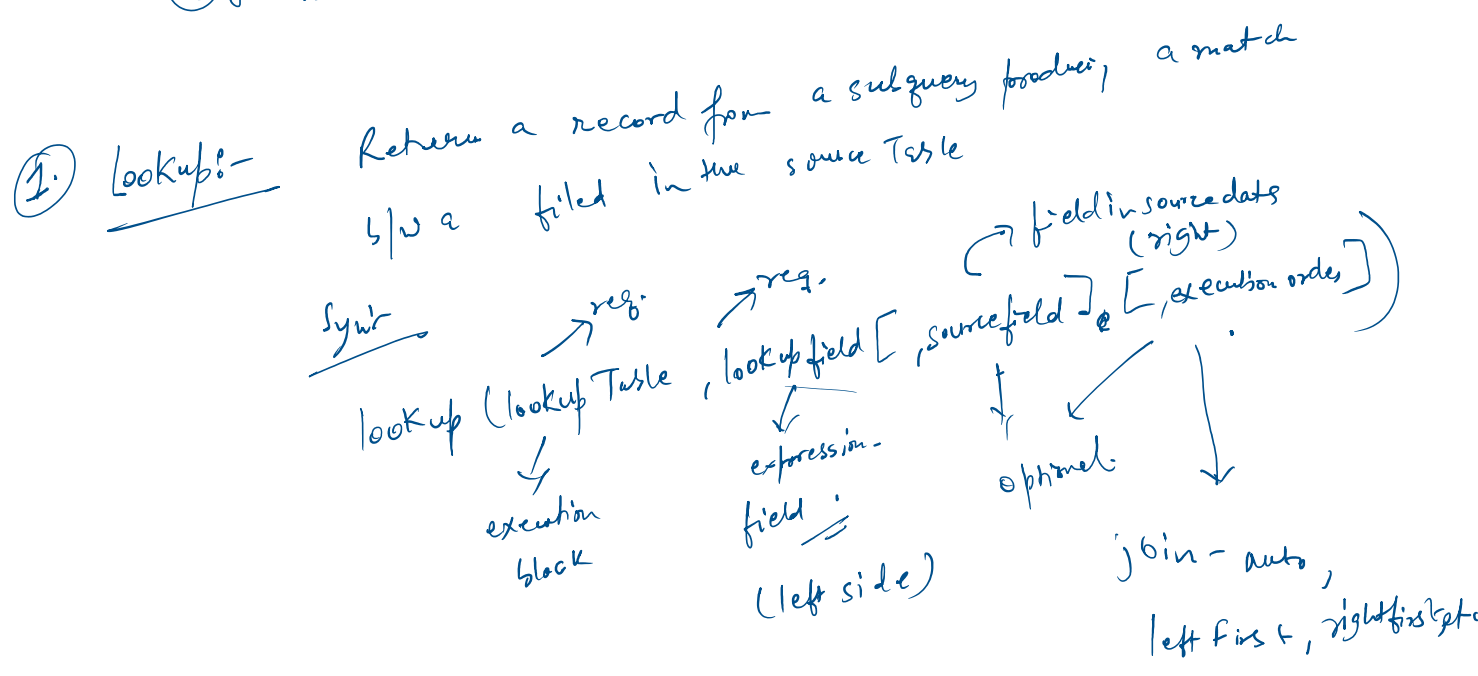 1. Lookup:- Return a record from a subquery producing a match
b/w a filed in the source Table
field in source data
(right)
Synt
req.
req.
lookup (lookup Table , lookup field [ , source field ] , [ , execution order ] )
execution
block
expression-
field
(left side)
optional.
join - auto,
left first, right first etc